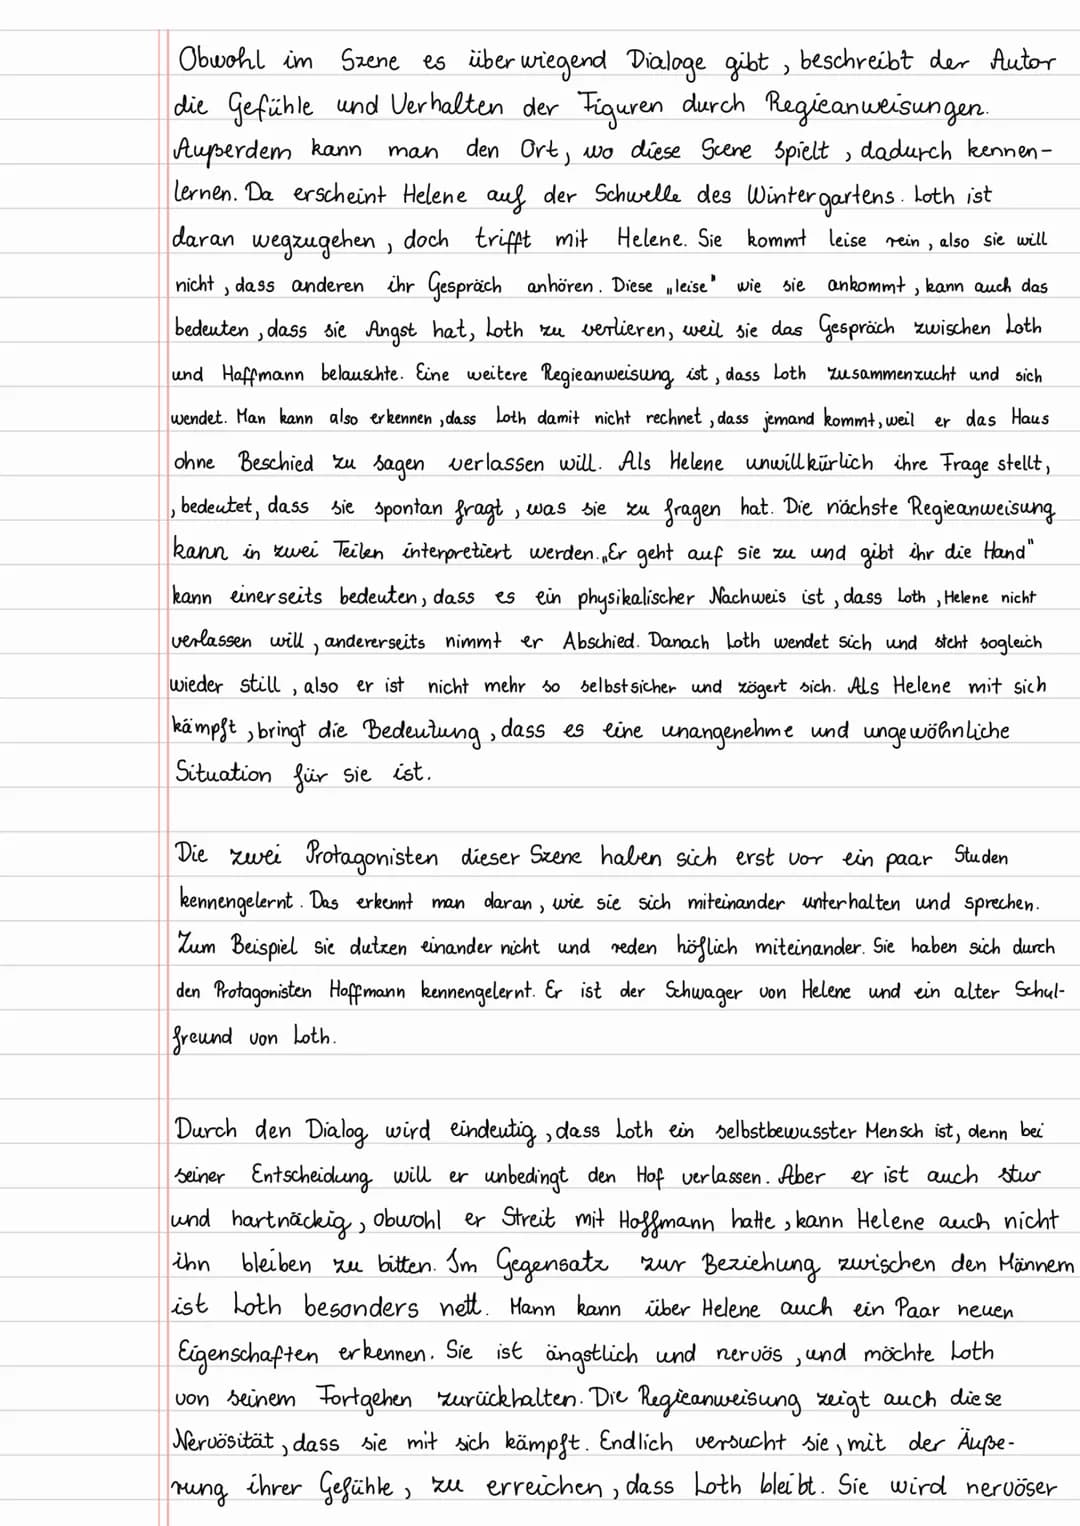 Obwohl im Szene es überwiegend Dialoge gibt, beschreibt der Autor
die Gefühle und Verhalten der Figuren durch Regieanweisungen.
Außerdem kann man den Ort, wo diese Scene spielt, dadurch kennen-
lernen. Da erscheint Helene auf der Schwelle des Wintergartens. Loth ist
daran wegzugehen, doch trifft mit Helene. Sie kommt leise rein, also sie will
nicht, dass anderen ihr Gespräch anhören. Diese „leise" wie sie ankommt, kann auch das
bedeuten, dass sie Angst hat, Loth zu verlieren, weil sie das Gespräch zwischen Loth
und Haffmann belauschte. Eine weitere Regieanweisung ist, dass Loth zusammenzucht und sich
wendet. Man kann also erkennen, dass Loth damit nicht rechnet, dass jemand kommt, weil er das Haus
ohne Beschied zu sagen verlassen will. Als Helene unwillkürlich ihre Frage stellt,
, bedeutet, dass sie spontan fragt, was sie zu fragen hat. Die nächste Regieanweisung
kann in zwei Teilen interpretiert werden. „Er geht auf sie zu und gibt ihr die Hand"
kann einerseits bedeuten, dass es ein physikalischer Nachweis ist, dass Loth, Helene nicht
verlassen will, andererseits nimmt er Abschied. Danach Loth wendet sich und steht sogleich
wieder still, also er ist nicht mehr so selbstsicher und zögert sich. Als Helene mit sich
kämpft, bringt die Bedeutung, dass es eine unangenehme und ungewöhnliche
Situation für sie ist.
Die zwei Protagonisten dieser Szene haben sich erst vor ein paar Studen
kennengelernt. Das erkennt man daran, wie sie sich miteinander unterhalten und sprechen.
Zum Beispiel sie dutzen einander nicht und reden höflich miteinander. Sie haben sich durch
den Protagonisten Hoffmann kennengelernt. Er ist der Schwager von Helene und ein alter Schul-
freund von Loth.
Durch den Dialog wird eindeutig, dass Loth ein selbstbewusster Mensch ist, denn bei
seiner Entscheidung will er unbedingt den Hof verlassen. Aber er ist auch stur
und hartnäckig, obwohl er Streit mit Hoffmann hatte, kann Helene auch nicht
ihn bleiben zu bitten. Im Gegensatz zur Beziehung zwischen den Männern
ist Loth besonders nett. Mann kann über Helene auch ein Paar neuen
Eigenschaften erkennen. Sie ist ängstlich und nervös, und möchte Loth
von seinem Fortgehen zurückhalten. Die Regieanweisung zeigt auch diese
Nervösität, dass sie mit sich kämpft. Endlich versucht sie, mit der Äuße-
rung ihrer Gefühle, zu erreichen, dass Loth bleibt. Sie wird nervöser